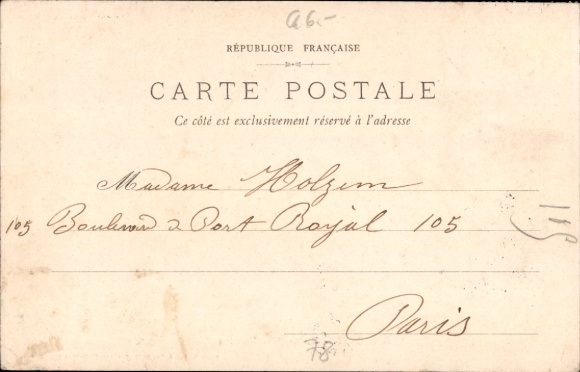 a6.-
RÉPUBLIQUE FRANÇAISE
CARTE POSTALE
Ce côté est exclusivement réservé à l'adresse
Madame Holzem
105 Boulevard de Port Royal 105
Paris
78.